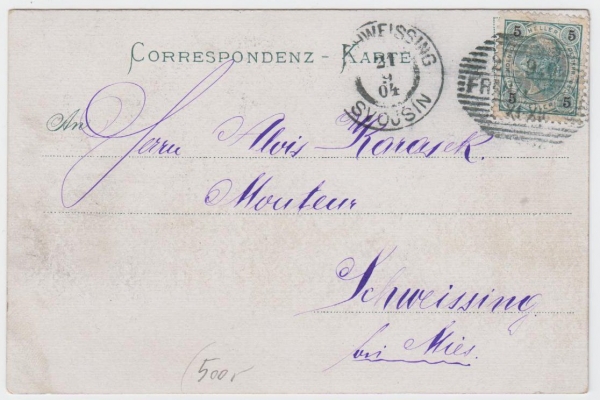 CORRESPONDENZ - KARTE
SCHWEISSING
21
9
04
SVOJŠIN
5 HELLER 5
5 5
An Herrn Alois Karasek.
Monteur
Schweissing
bei Mies.
500,-